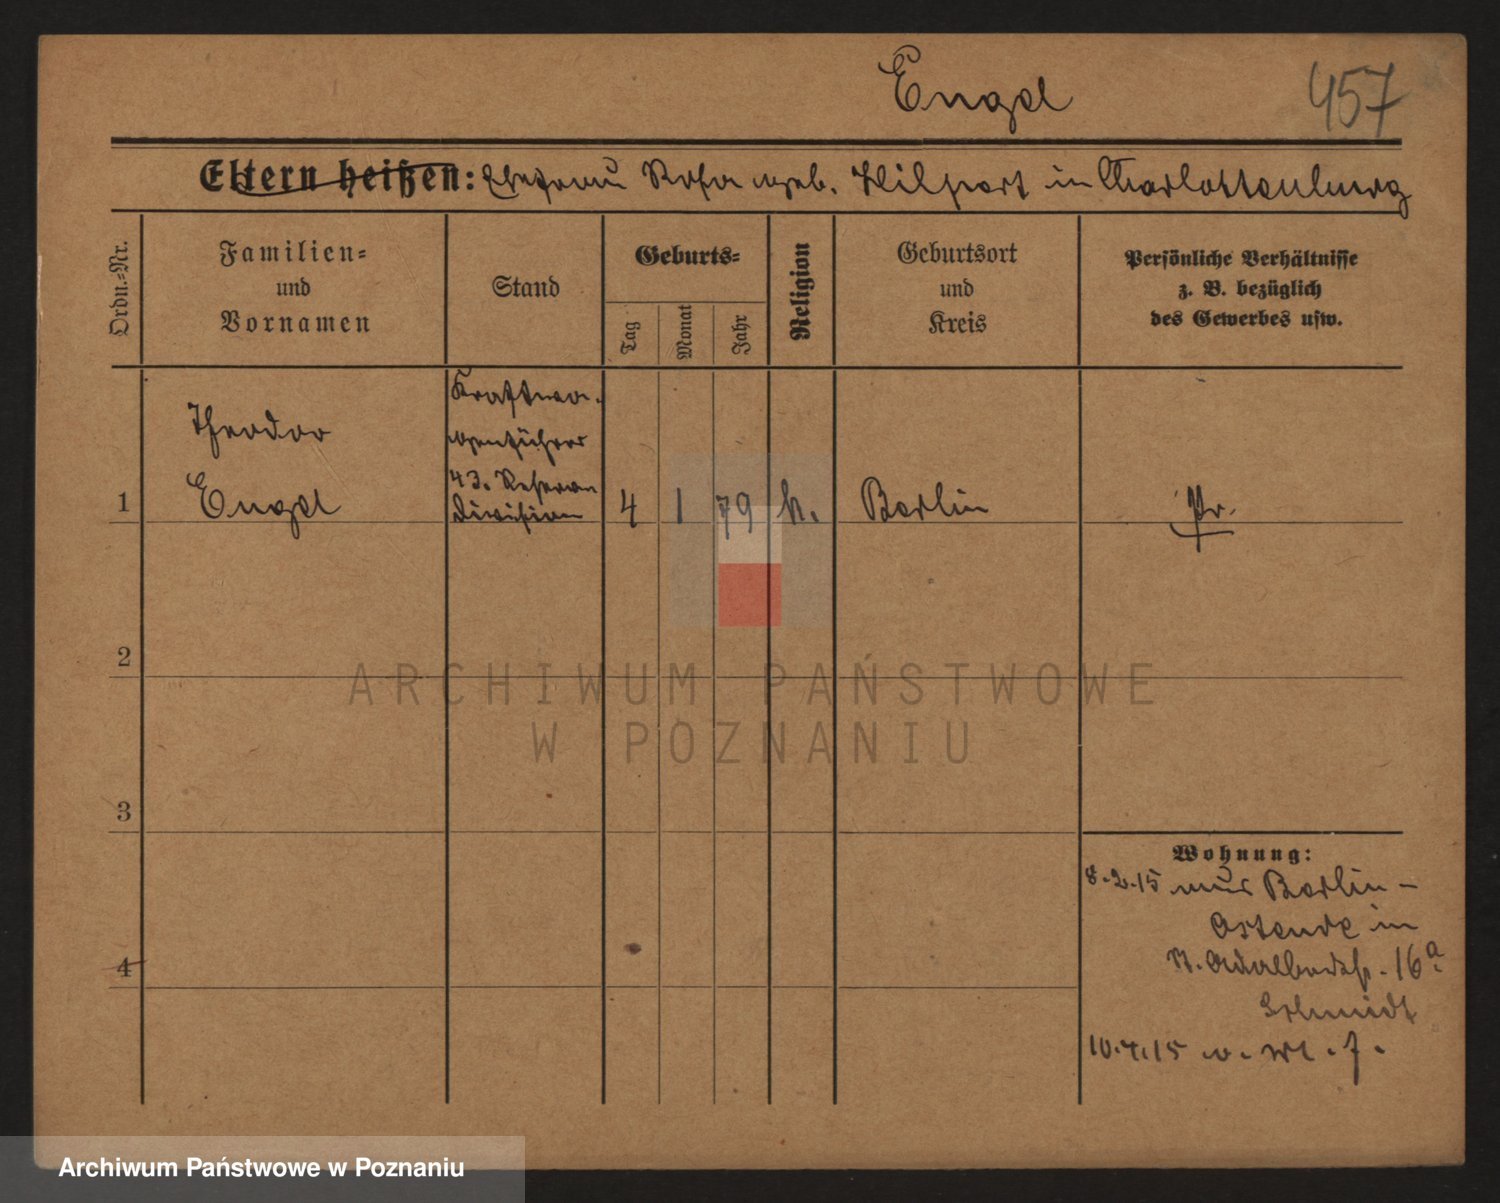 Engel 457
Eltern heißen: Ehefrau Rosa geb. Hilpert in Charlottenburg
Ordn.-Nr.
Familien-
und
Vornamen
Stand
Geburts-
Tag
Monat
Jahr
Religion
Geburtsort
und
Kreis
Persönliche Verhältnisse
z. B. bezüglich
des Gewerbes usw.
Kraftwa-
genführer
43. Reserve
Division
Theodor
1 Engel 4 1 79 k. Berlin Pr.
2
3
4
Wohnung:
8.2.15 aus Berlin-
Ostende in
St. Adalbertstr. 16a
Schmidt
10.4.15 v.
ARCHIWUM PAŃSTWOWE
W POZNANIU
Archiwum Państwowe w Poznaniu